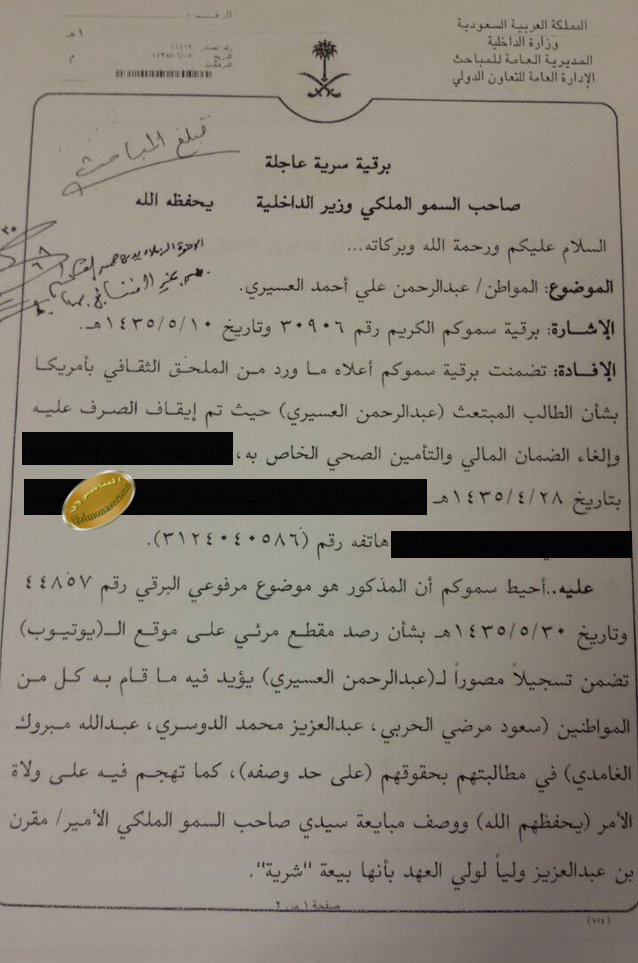 المملكة العربية السعودية
وزارة الداخلية
المديرية العامة للمباحث
الإدارة العامة للتعاون الدولي
تبلغ المباحث
برقية سرية عاجلة
صاحب السمو الملكي وزير الداخلية يحفظه الله
السلام عليكم ورحمة الله وبركاته...
الموضوع: المواطن/ عبدالرحمن علي أحمد العسيري.
الإشارة: برقية سموكم الكريم رقم ٣٠٩٠٦ وتاريخ ١٤٣٥/٥/١٠هـ.
الإفادة: تضمنت برقية سموكم أعلاه ما ورد من الملحق الثقافي بأمريكا
بشأن الطالب المبتعث (عبدالرحمن العسيري) حيث تم إيقاف الصرف عليه
وإلغاء الضمان المالي والتأمين الصحي الخاص به،
بتاريخ ١٤٣٥/٤/٢٨هـ
هاتفه رقم (٣١٢٤٠٤٠٥٨٦).
عليه..أحيط سموكم أن المذكور هو موضوع مرفوعي البرقي رقم ٤٤٨٥٧
وتاريخ ١٤٣٥/٥/٣٠هـ بشأن رصد مقطع مرئي على موقع الـ(يوتيوب)
تضمن تسجيلاً مصوراً لـ(عبدالرحمن العسيري) يؤيد فيه ما قام به كل من
المواطنين (سعود مرضي الحربي، عبدالعزيز محمد الدوسري، عبدالله مبروك
الغامدي) في مطالبتهم بحقوقهم (على حد وصفه)، كما تهجم فيه على ولاة
الأمر (يحفظهم الله) ووصف مبايعة سيدي صاحب السمو الملكي الأمير/ مقرن
بن عبدالعزيز ولياً لولي العهد بأنها بيعة "شرية".
صفحة ١ من ٢